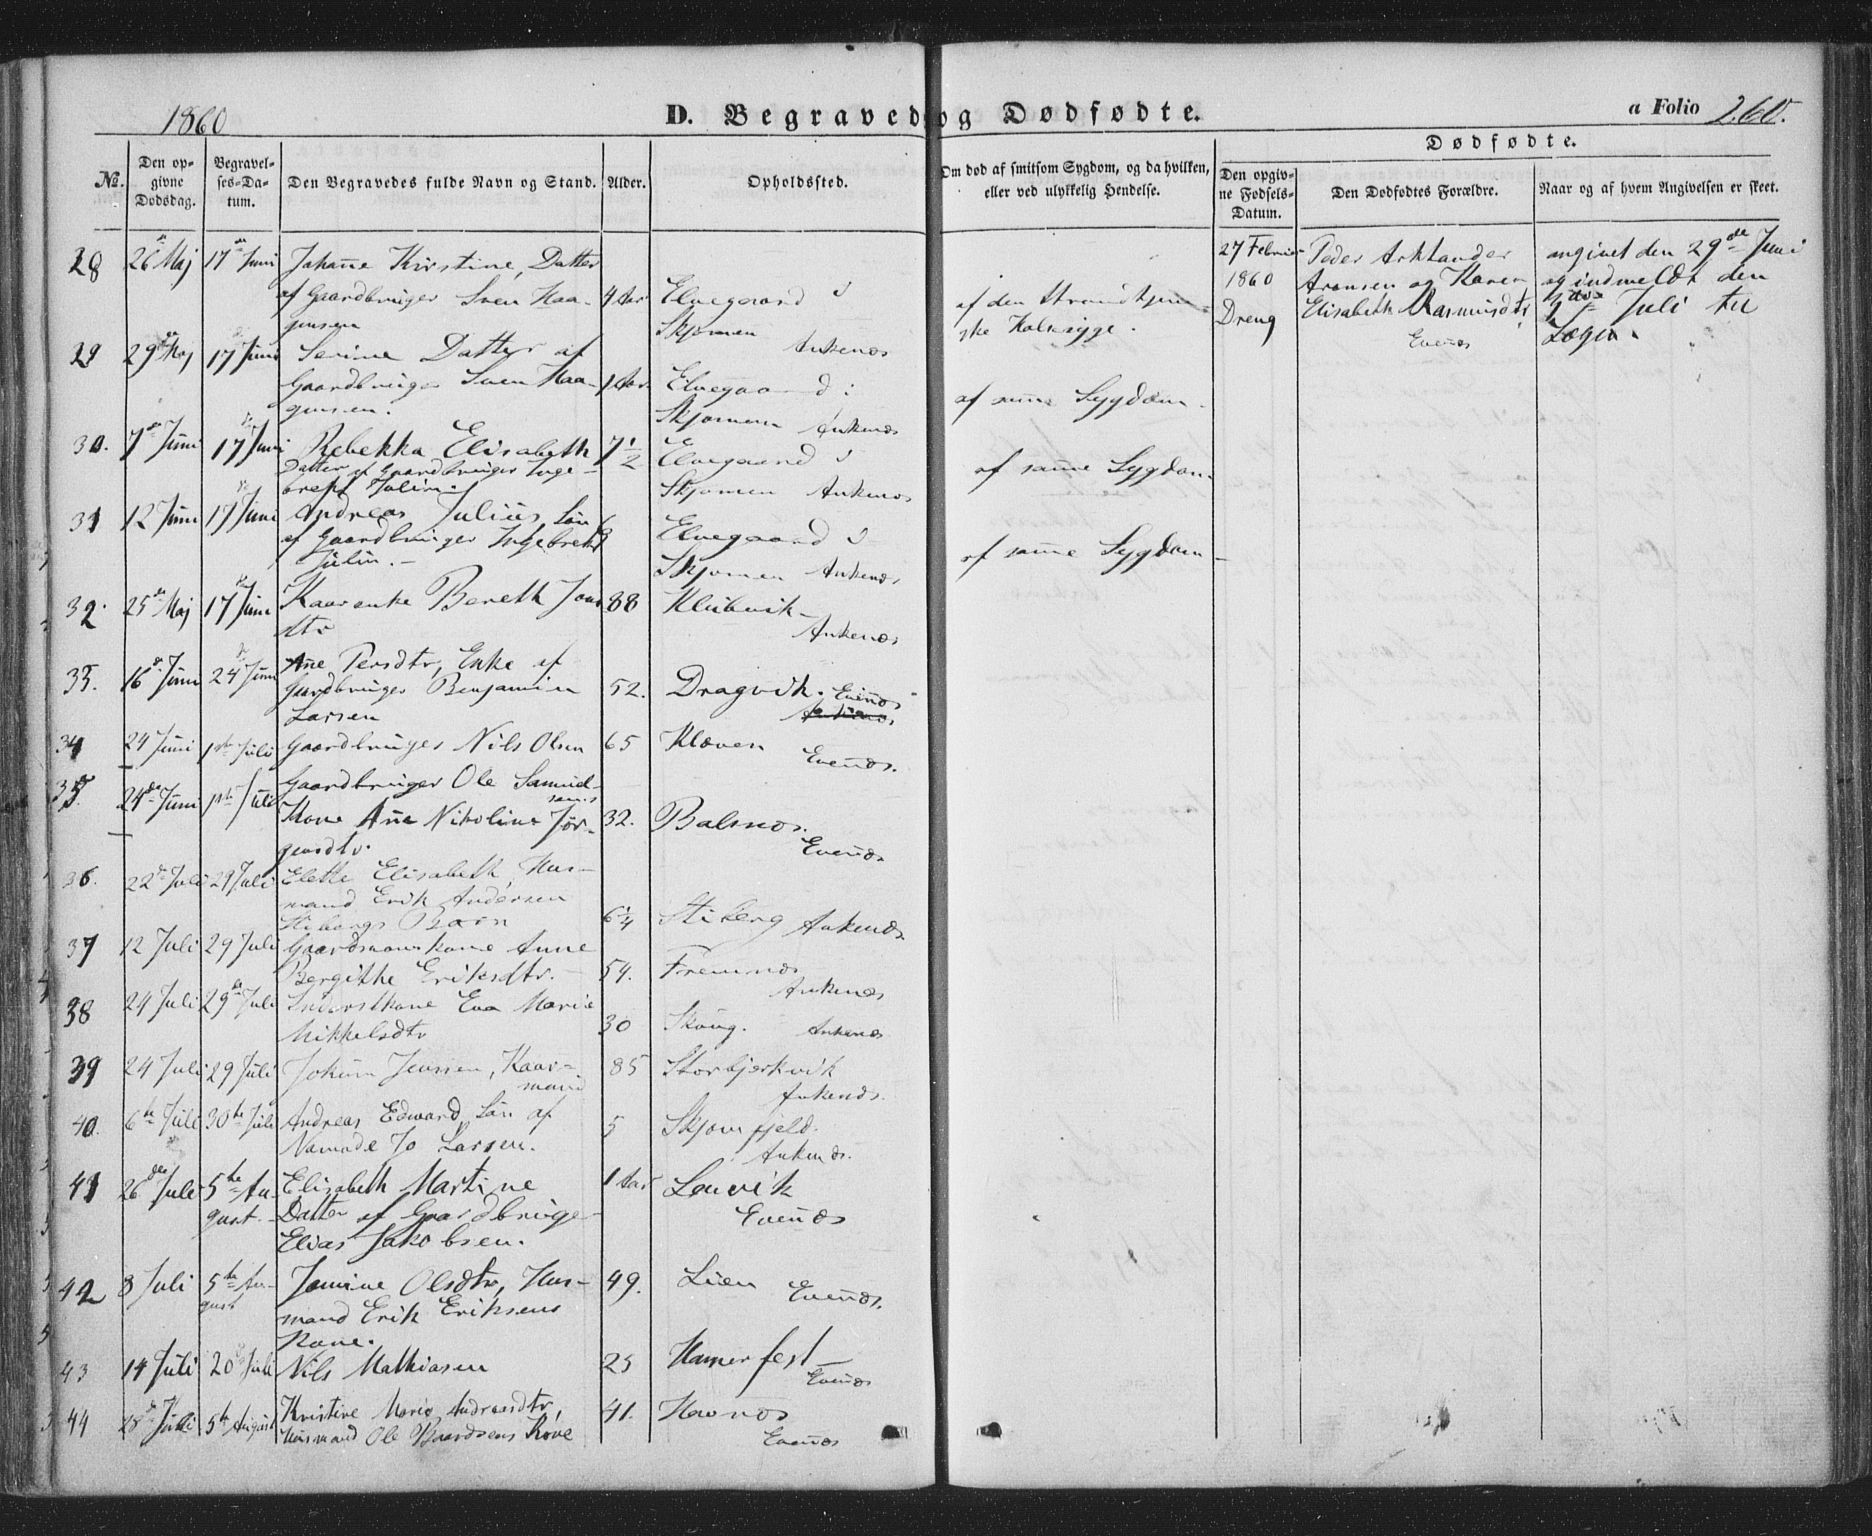 1860
D. Begravede og Dødfødte.
a Folio 260.
Dødfødte.
No.
Den opgivne Dødsdag.
Begravelses-Datum.
Den Begravedes fulde Navn og Stand.
Alder.
Opholdssted.
Om død af smitsom Sygdom, og da hvilken, eller ved ulykkelig Hendelse.
Den opgivne Fødsels-Datum.
Den Dødfødtes Forældre.
Naar og af hvem Angivelsen er skeet.
28 26de Maj 17de Juni Johanne Kirstine, Datter
af Gaardbruger Sven Haa- 4 Aar Elvegaard i
gensen Skjomen Ankenæs
af den
ske Halssyge.
27 Februar 1860 Dreng
Peder
Aronsen og Karen
Elisabeth Rasmusdtr
Evenæs
angivet den 29de Juni
og indmeldt den
Juli til
Lægen.
29 29de Maj 17 Juni Serine Datter af
Gaardbruger Sven Haa- 1 Aar Elvegaard i
gensen. Skjomen Ankenæs
af samme Sygdom
30. 7de Juni 17 Juni Rebekka Elisabeth 7½ Elvegaard i
Datter af Gaardbruger Inge-
brekt Julin. Skjomen Ankenæs
af samme Sygdom.
31 12 Juni 17 Juni Andreas Julius, Søn
af Gaardbruger Ingebrekt Elvegaard i
Julin. Skjomen Ankenæs
af samme Sygdom
32. 25de Maj 17 Juni Kaarenke Bereth Jons 88 Klubvik
dtr Ankenæs
33. 16de Juni 24 Juni Ane Persdtr, Enke af
Gaardbruger Benjamin 52. Dragvik. Evenæs
Larsen
34 24 Juni 1ste Juli Gaardbruger Nils Olsen 65 Kleven
Evenæs.
35. 24de Juni 1ste Juli Gaardbruger Ole Samuel-
sens
Kone Ane Nikoline Jør- 32. Balsnes.
gensdtr. Evenæs
36. 22de Juli 29 Juli Elette Elisabeth, Hus-
mand Erik Andersen
Stibergs Barn 6¼ Stiberg Ankenæs.
37 12 Juli 29 Juli Gaardmandskone Anne
Bergithe Eriksdtr. 54. Fremnes
Ankenæs
38 24 Juli 29de Juli Inderstkone Eva Marie
Mikkelsdtr 30 Skoug. Ankenæs
39 24 Juli 29 Juli Jokum Jenssen, Kaar- 85 Storbjerkvik
mand Ankenæs.
40. 6te Juli 30te Juli Andreas Edward, Søn af 5 Skjomfjeld.
Nomade Jo Larsen. Ankenæs.
41 26de Juli 5te Au- Elisabeth Martine 1 Aar Lenvik
gust. Datter af Gaardbruger Evenæs
Elias Jakobsen.
42 8 Juli 5te Au- Jomine Olsdtr, Hus- 49. Lien
gust mand Erik Eriksens Evenæs.
Kone.
43 14 Juli 20 Juli Nils Mathiasen 25 Hamerfest
Evenæs
44 28de Juli 5te August Kristine Marie Andreasdtr, 41. Havnes
Husmand Ole Baardsens Kone Evenæs